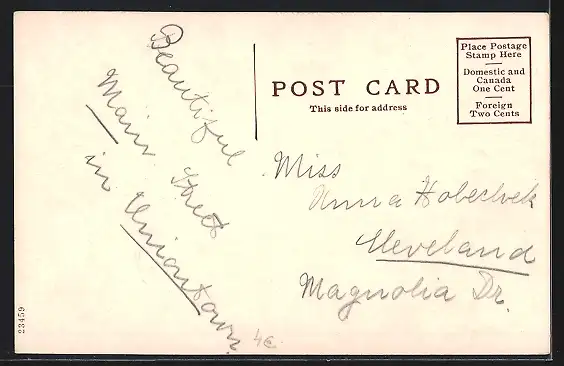 Beautiful
Main Street
in Uniontown
POST CARD
This side for address
Place Postage
Stamp Here
Domestic and
Canada
One Cent
Foreign
Two Cents
Miss
Anna
Cleveland
Magnolia Dr.
23459
4€